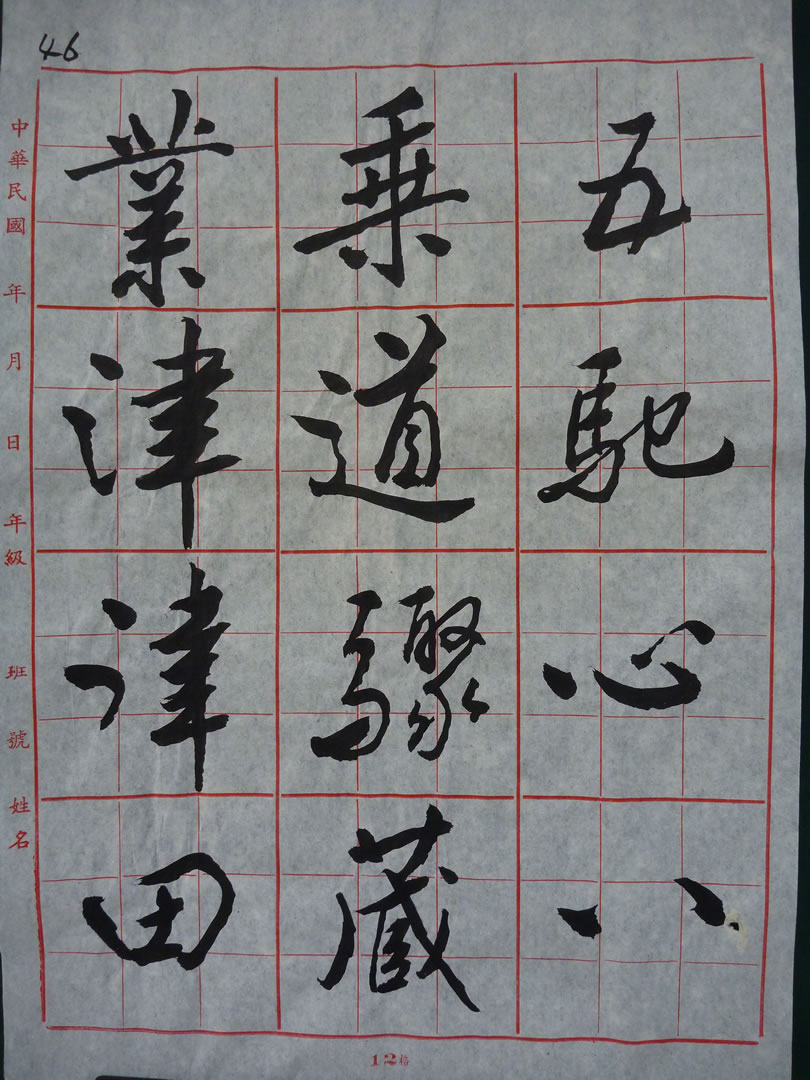 46
五馳心八
乘道驟藏
業津律田
中華民國 年 月 日 年級 班 號 姓名
12格